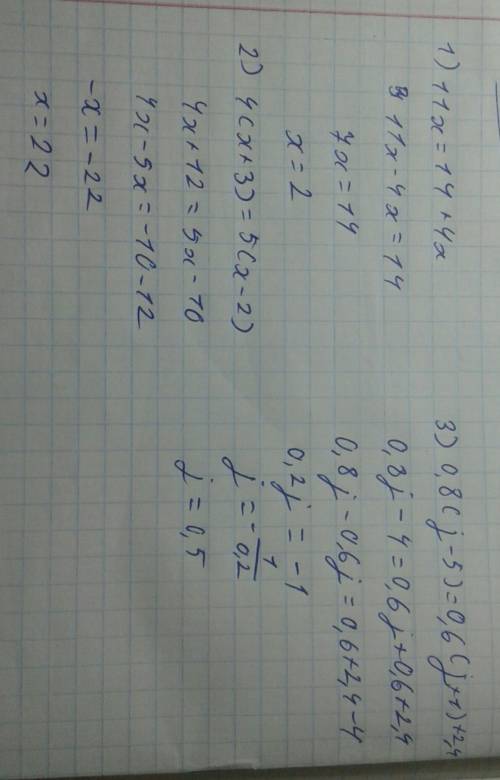 1) 11x = 14 + 4x
11x - 4x = 14
7x = 14
x = 2
2) 4(x+3) = 5(x-2)
4x + 12 = 5x - 10
4x - 5x = -10 - 12
-x = -22
x = 22
3) 0,8(j-5) = 0,6(j+1)+2,4
0,8j - 4 = 0,6j + 0,6 + 2,4
0,8j - 0,6j = 0,6 + 2,4 - 4
0,2j = -1
j = - 1/0,2
j = 0,5